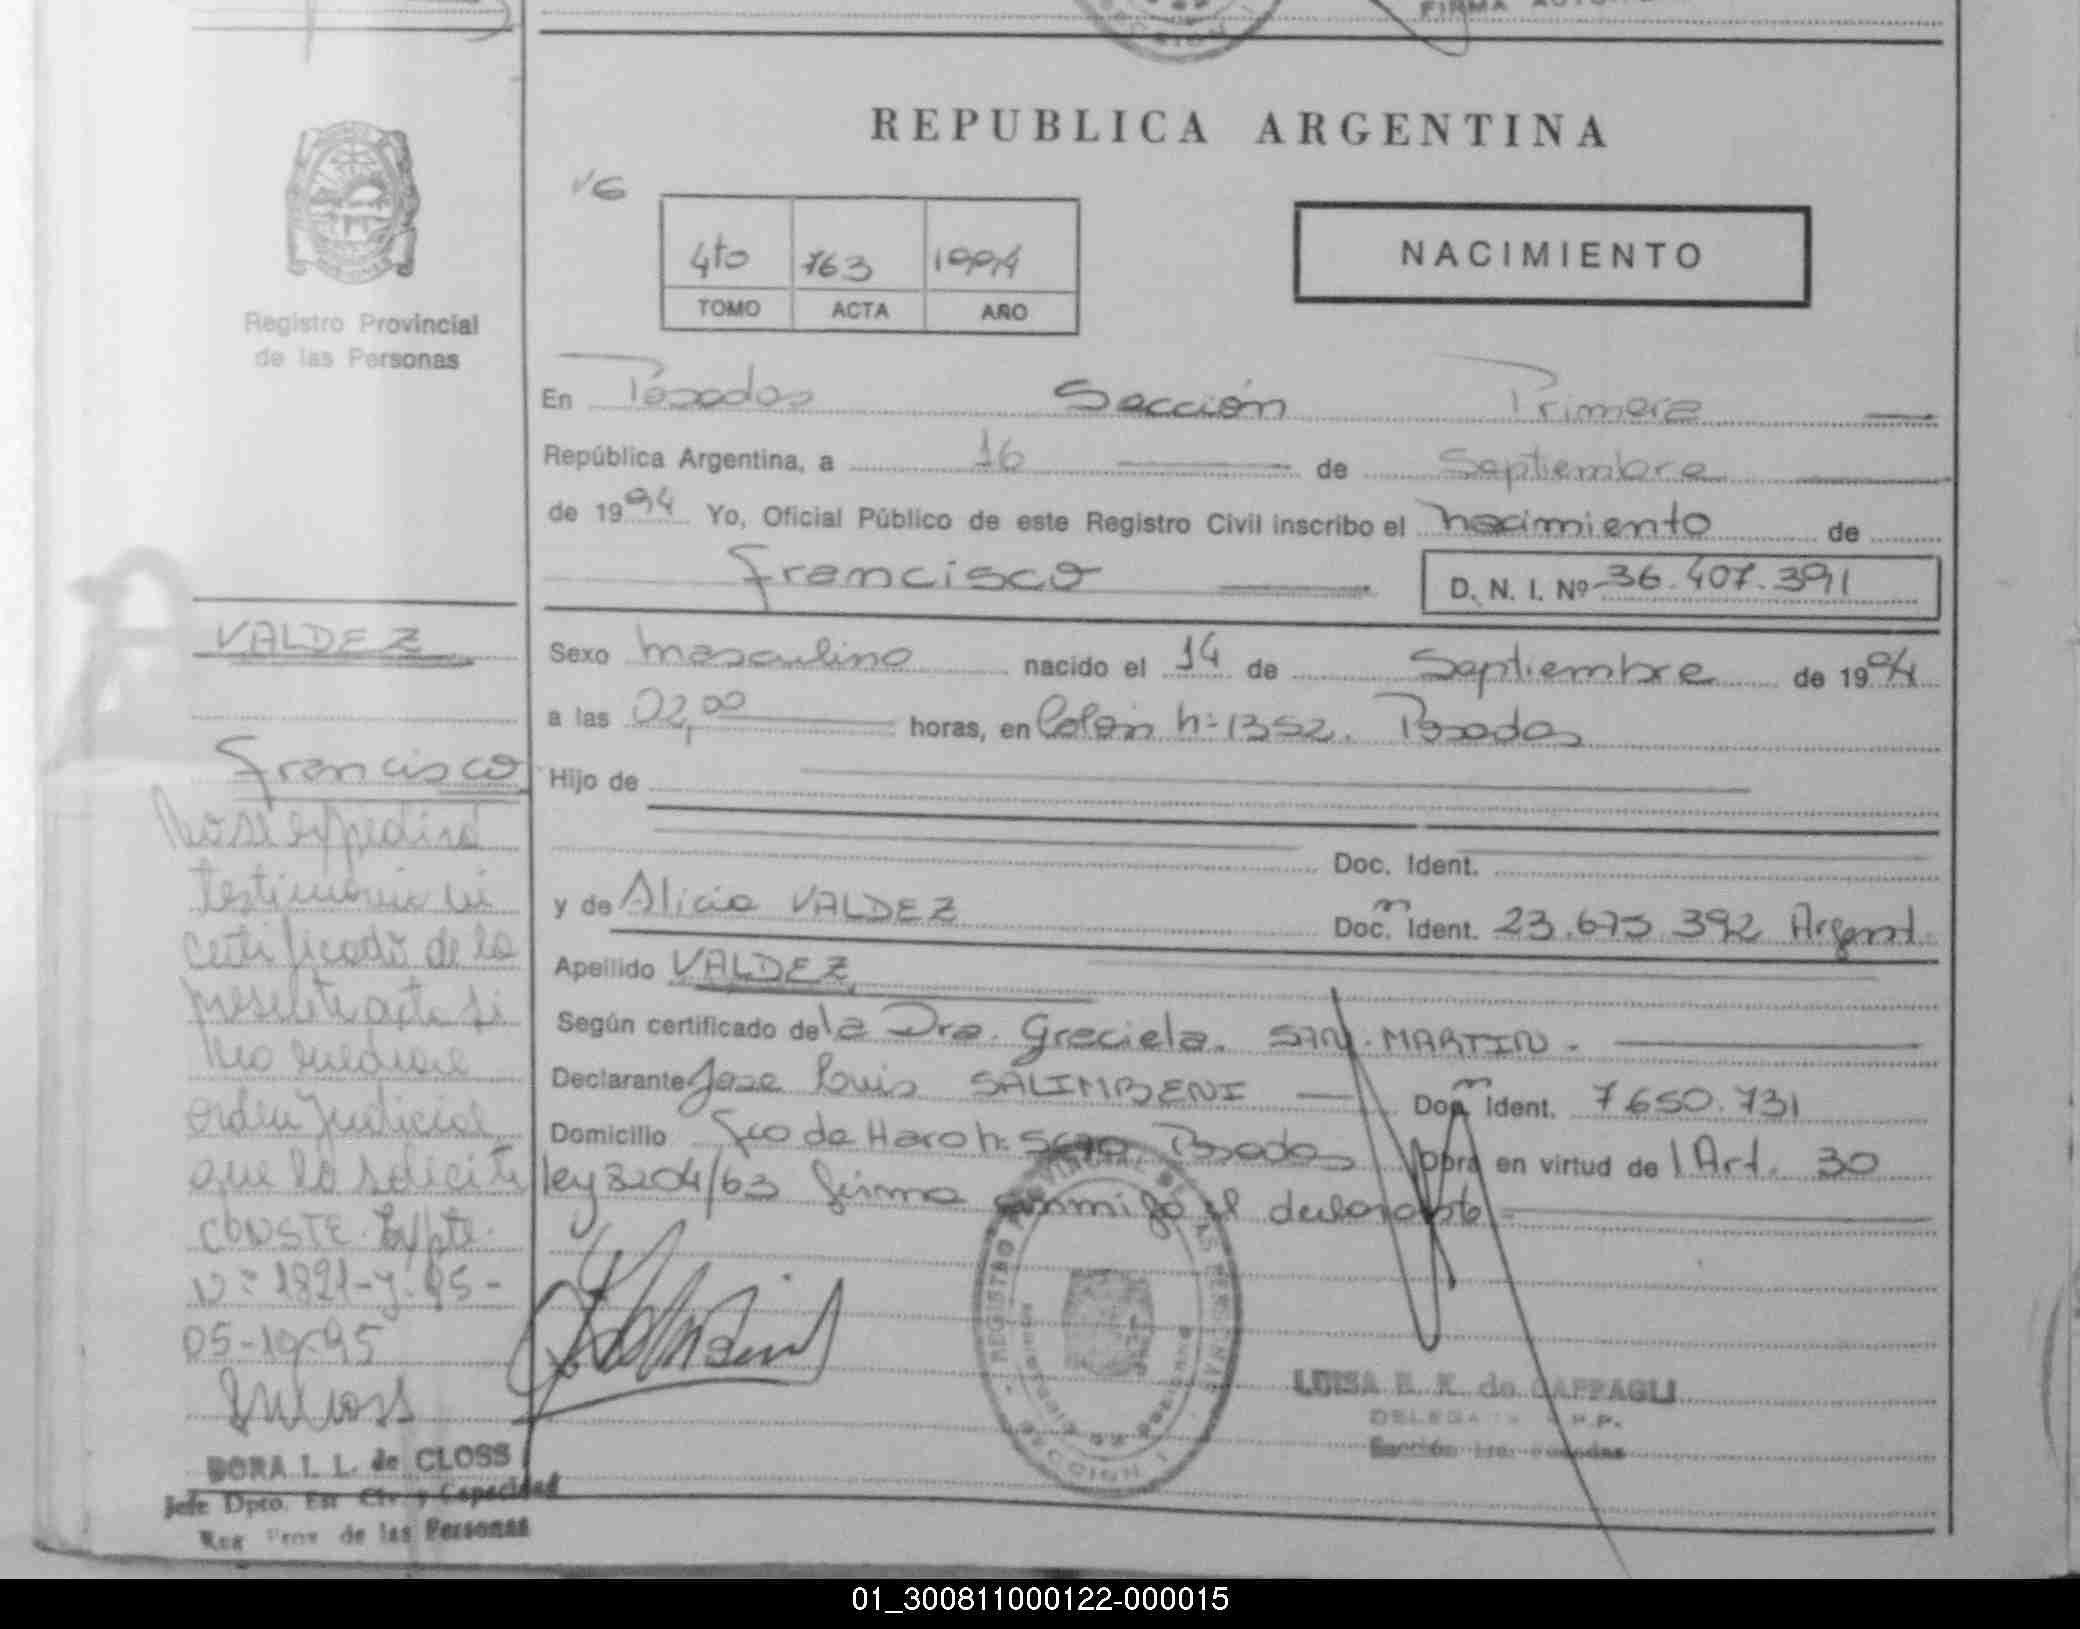 REPUBLICA ARGENTINA
NACIMIENTO
4to 763 1994
TOMO ACTA AÑO
Registro Provincial
de las Personas
En Posadas Sección Primera
República Argentina, a 16 de Septiembre
de 1994 Yo, Oficial Público de este Registro Civil inscribo el nacimiento de
Francisco D. N. I. Nº 36.407.391
VALDEZ
Francisco
No se expedirá
testimonio ni
certificado de la
presente acta si
no mediare
orden judicial
que lo solicite
CONSTE. Expte.
Nº 1821-y-95-
05-10-95
DORA I. L. de CLOSS
Jefe Dpto. Est Civ. y Capacidad
Reg Prov de las Personas
Sexo masculino nacido el 14 de Septiembre de 1994
a las 02,00 horas, en Colón nº 1352. Posadas
Hijo de
Doc. Ident.
y de Alicia VALDEZ Doc. Ident. 23.675.392 Argent.
Apellido VALDEZ
Según certificado de la Dra. Graciela. SAN MARTIN.
Declarante Jose Luis SALIMBENI Doc. Ident. 7650.731
Domicilio Fco de Haro nº Posadas obra en virtud del Art. 30
ley 3204/63 firma conmigo el declarante
REGISTRO PROVINCIAL DE LAS PERSONAS
SECCION 1
LUISA E. K. de CAPPAGLI
DELEGADA R.P.P.
Sección 1ra. Posadas
01_300811000122-000015